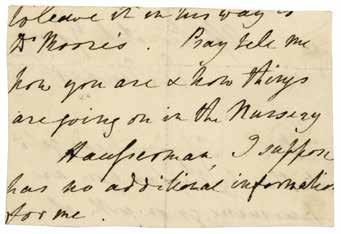 to leave it in his way to
Dr Moore's. Pray tele me
how you are & how things
are going on in the Nursery
Hausserman, I suppose
has no additional information
for me.